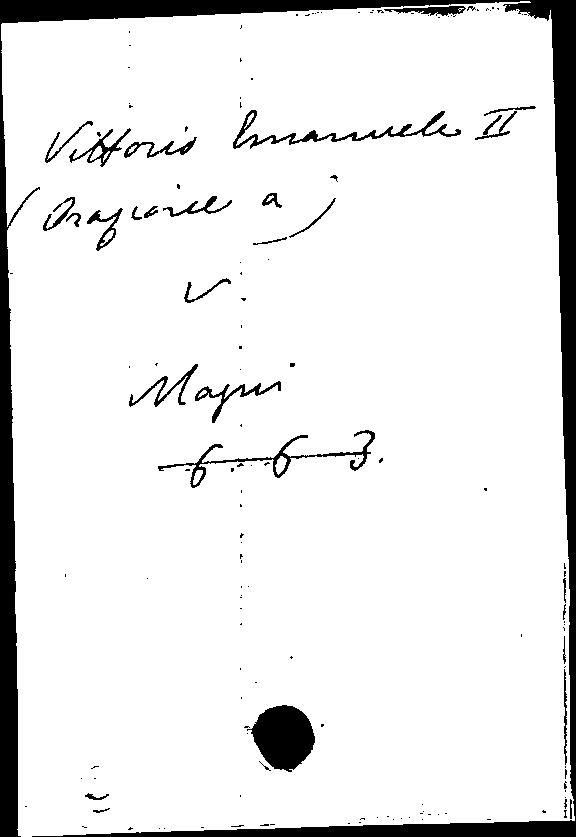 Vittorio Emanuele II
(Orazione a)
V.
Magni
6. 6 3.